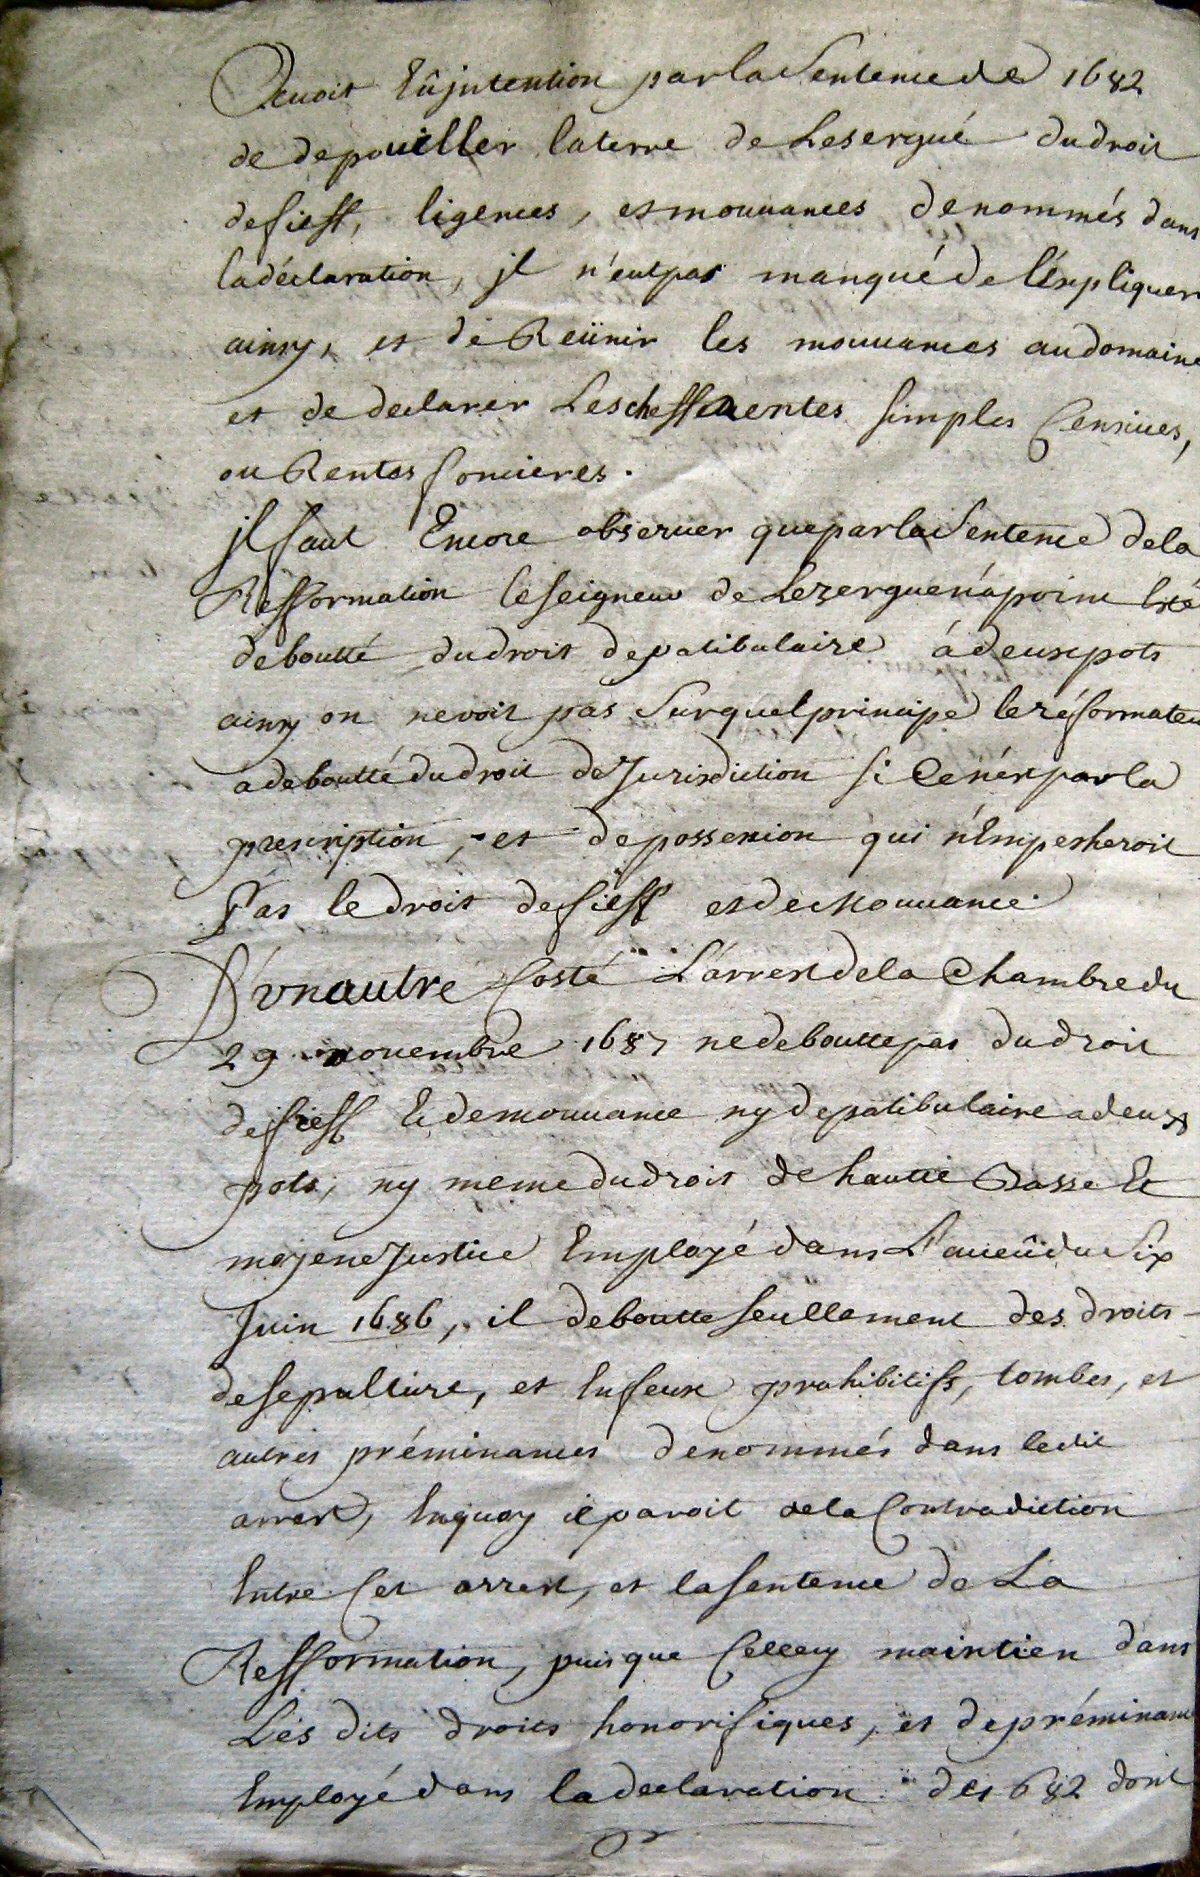 avoit Eû jntention par la Sentence de 1682
de depouiller la terre de Lesergué du droit
de fieff, ligences, et mouuances denommés dans
la déclaration, jl n'eut pas manqué de l'éxpliquer
ainsy, et de Reünir les mouuances au domaine
et de declarer Les cheffrentes simples Censiues,
ou Rentes foncieres.
jl faut Encore obseruer que par la Sentence de la
Refformation le seigneur de Lezergue n'a point Esté
deboutté du droit de patibulaire á deux pots
ainsy on ne voit pas Sur quel principe le réformateur
a deboutté du droit de Jurisdiction si Ce n'ést par la
prescription, et depossession qui n'Empecheroit
Pas le droit de fieff et de Mouuance.
D'vn autre Costé L'arrest de la Chambre du
29 nouembre 1687 ne deboutte pas du droit
de fieff Et de mouuance ny de patibulaire a deux
pots, ny meme du droit de hautte Basse Et
moyene Justice Employé dans L'aueü du Six
Juin 1686, il deboutte seullement des droits
de sepulture, et Enfeux prohibitifs, tombes, et
autres préminances denommés dans ledit
arrest, Enquoy il paroit de la Contradiction
Entre Cet arrest, et la sentence de La
Refformation, puis que Cellecy maintien dans
Les dits droits honorifiques, et de préminance
Employé dans la declaration de 1682 dont